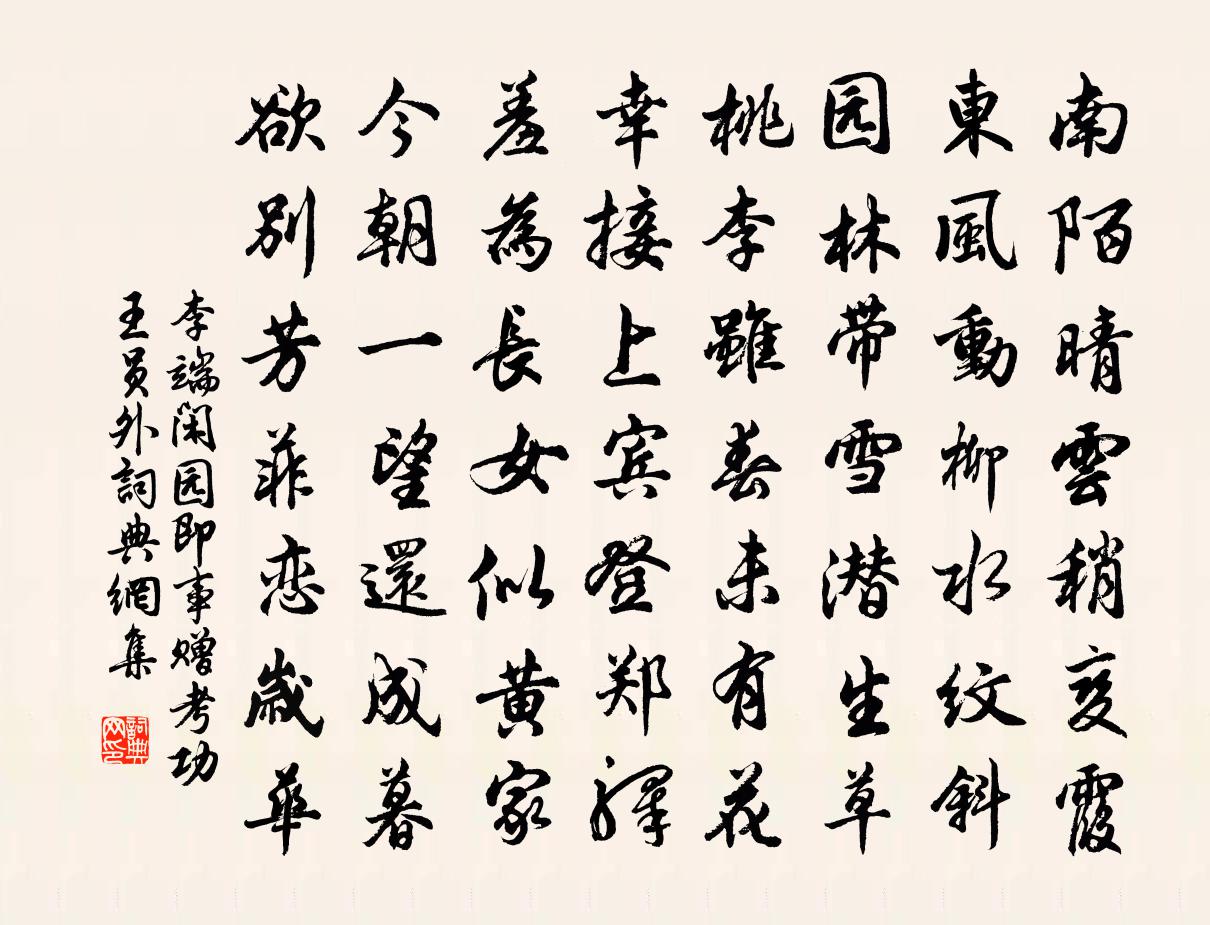 南陌晴雲稍变霞
東風動柳水紋斜
园林带雪潜生草
桃李雖春未有花
幸接上宾登郑驛
羞為長女似黄家
今朝一望還成暮
欲别芳菲恋歲華
李端闲园即事赠考功
王員外詞典網集
詞典网印